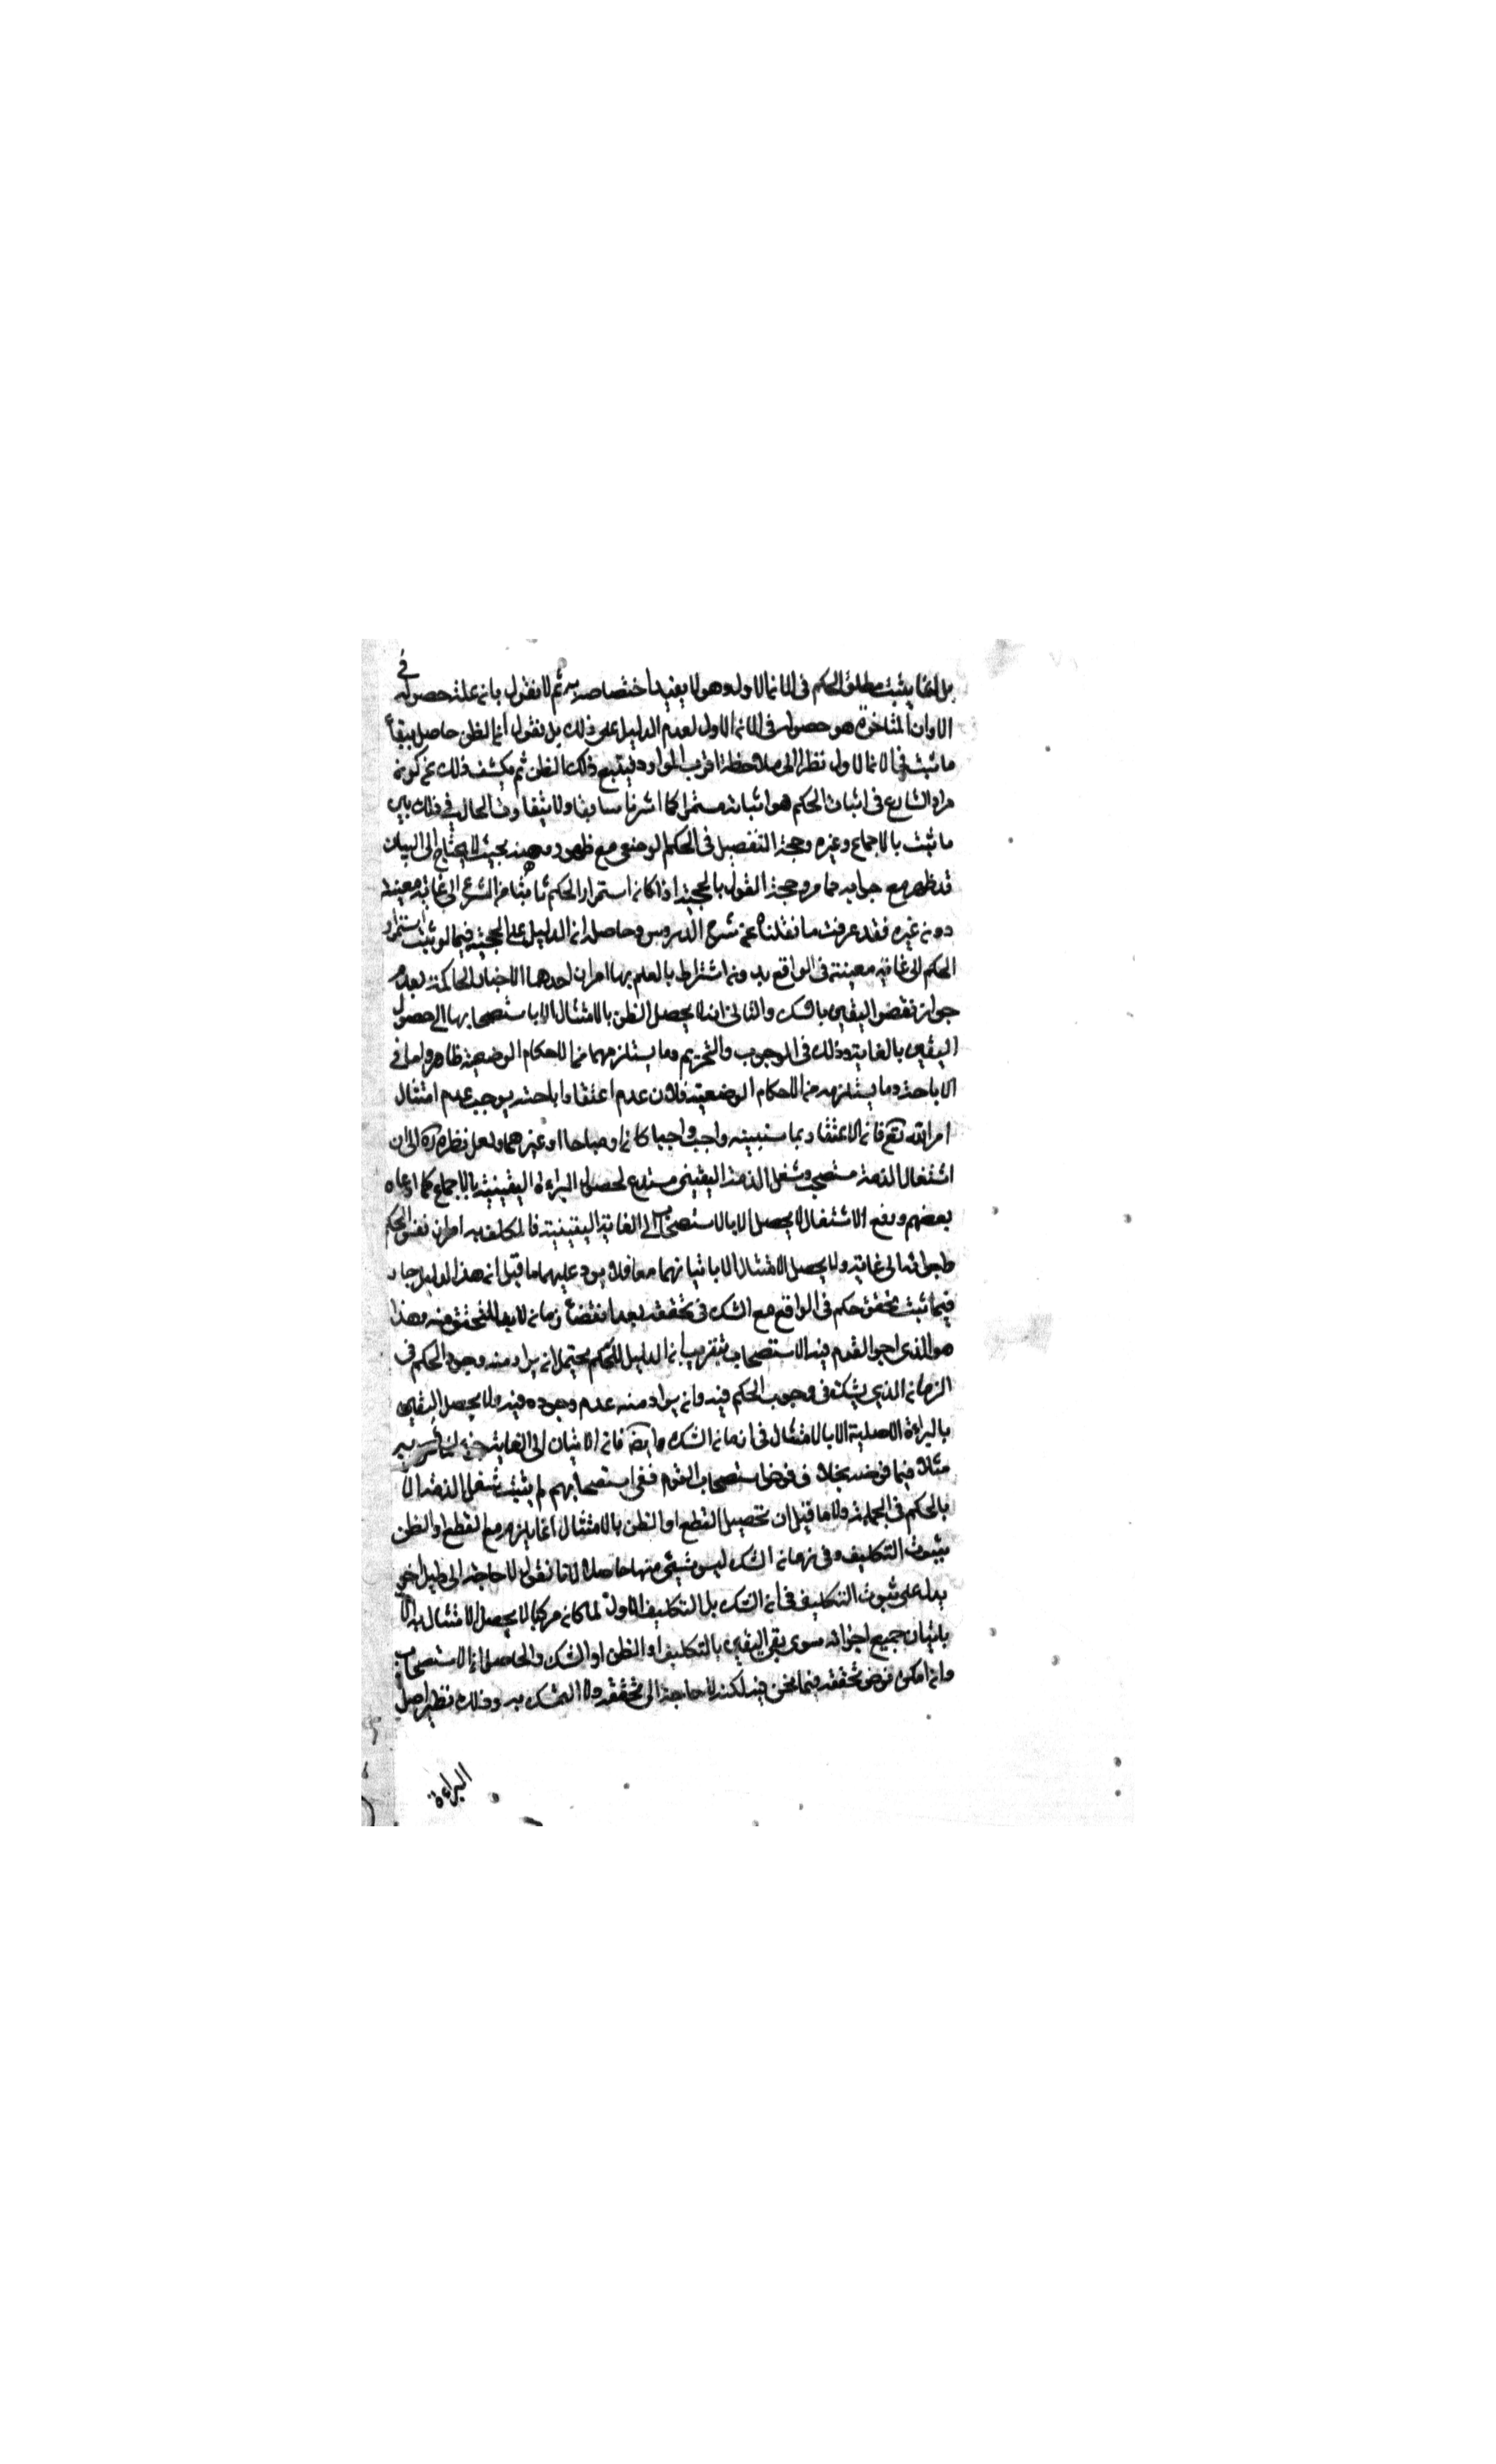 بل انما يثبت مطلق الحكم في الان الاول وهو لا يفيد اختصاصه به ثم لا نقول بان علة حصوله في
الاوان المتاخرة هو حصوله في الان الاول لعدم الدليل على ذلك بل نقول ان الظن حاصل ببقاء
ما ثبت في الان الاول نظرا الى ملاحظة اغلب الموارد فيتبع ذلك الظن ثم يكشف ذلك عن كون
مراد الشارع في اثبات الحكم هو اثباته مستمرا كما اشرنا سابقا ولا يتفاوت الحال في ذلك بين
ما ثبت بالاجماع وغيره وحجة التفصيل في الحكم الوضعي مع ظهور وهنه بحيث لا يحتاج الى البيان
قد ظهر مع جوابه مما مر وحجة القول بالحجية اذا كان استمرار الحكم ثابتا من الشرع الى غاية معينة
دون غيره فقد عرفت ما نقلناه عن شرح الدروس وحاصله ان الدليل على الحجية فيما لو ثبت استمرار
الحكم الى غاية معينة في الواقع بدون اشتراط بالعلم بها امران احدهما الاخبار الحاكمة بعدم
جواز نقض اليقين بالشك والثاني انه لا يحصل الظن بالامتثال الا باستصحابها الى حصول
اليقين بالغاية وذلك في الوجوب والتحريم وما يستلزمهما من الاحكام الوضعية ظاهر واما في
الاباحة وما يستلزمه من الاحكام الوضعية فلان عدم اعتقاد اباحته يوجب عدم امتثال
امر الله تع فان الاعتقاد بما سنبينه واجب واجبا كان او مباحا او غيرهما ولعل نظره ره الى ان
اشتغال الذمة مستصحب وشغل الذمة اليقيني مستدع لحصول البراءة اليقينية بالاجماع كما ادعاه
بعضهم ورفع الاشتغال لا يحصل الا بالاستصحاب الى الغاية اليقينية فالمكلف به امران نفس الحكم
واجرائه الى غاية ولا يحصل الامتثال الا باتيانهما معا فلا يرد عليهما ما قيل ان هذا الدليل جار
فيما ثبت تحقق حكم في الواقع مع الشك في تحققه بعد انقضاء زمان لابد للتحقق منه وهذا
هو الذي اجرى القوم فيه الاستصحاب بتقريب ان الدليل للحكم يحتمل ان يراد منه وجود الحكم في
الزمان الذي يشك في وجوب الحكم فيه وان يراد منه عدم وجوده فيه ولا يحصل اليقين
بالبراءة الاصلية الا بالامتثال في زمان الشك وايضا فان الاتيان الى الغاية جزء
مثلا فيما فرضه بخلاف فرض استصحاب القوم ففي استصحابهم لم يثبت شغل الذمة الا
بالحكم في الجملة ولا ما قيل ان تحصيل القطع او الظن بالامتثال انما يلزم مع القطع او الظن
بثبوت التكليف وفي زمان الشك ليس شيء منها حاصلا لانا نقول لا حاجة الى دليل اخر
يدل على ثبوت التكليف في ان الشك بل التكليف الاول لما كان مركبا لا يحصل الامتثال به الا
باتيان جميع اجزائه سوى بقي اليقين بالتكليف او الظن او الشك والحاصل ان الاستصحاب
وان امكن فرض تحققه فيما نحن فيه لكنه لا حاجة الى تحققه ولا التمسك به وذلك نظير اصل
البراءة